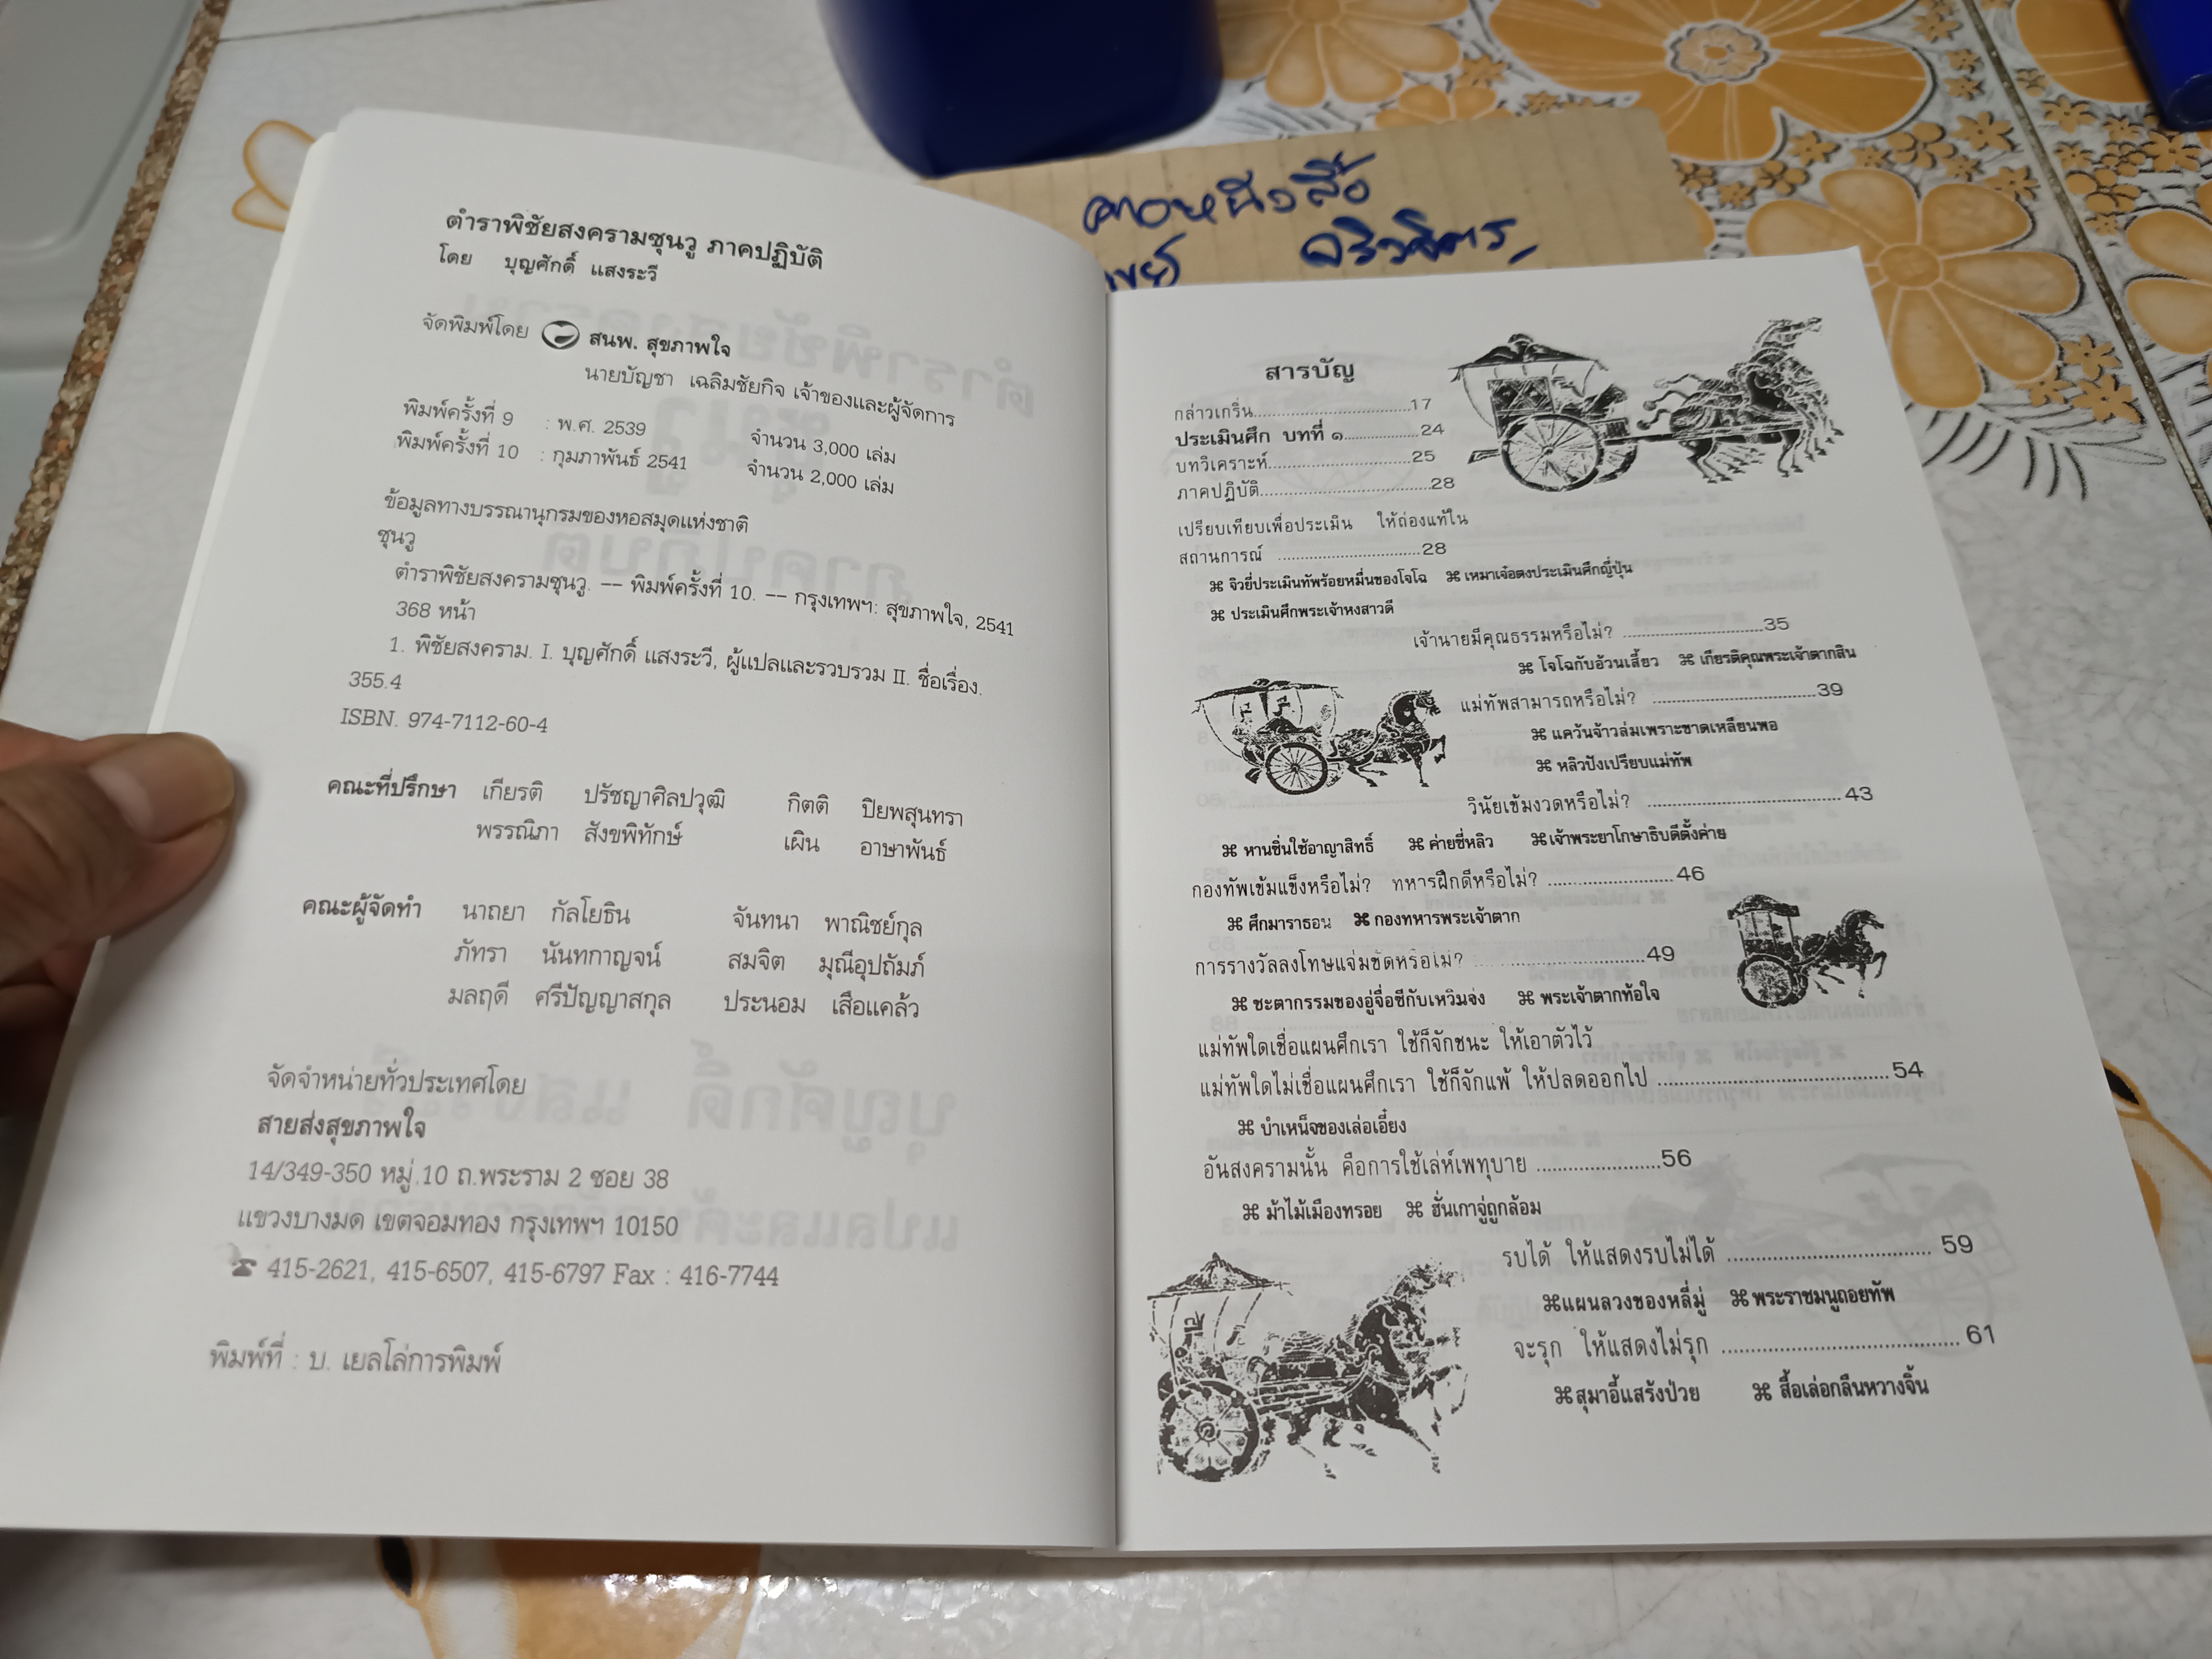 ตำราพิชัยสงครามซุนวู ภาคปฏิบัติ
โดย บุญศักดิ์ แสงระวี
จัดพิมพ์โดย สนพ. สุขภาพใจ
นายบัญชา เฉลิมชัยกิจ เจ้าของและผู้จัดการ
พิมพ์ครั้งที่ 9 : พ.ศ. 2539 จำนวน 3,000 เล่ม
พิมพ์ครั้งที่ 10 : กุมภาพันธ์ 2541 จำนวน 2,000 เล่ม
ข้อมูลทางบรรณานุกรมของหอสมุดแห่งชาติ
ซุนวู
ตำราพิชัยสงครามซุนวู. -- พิมพ์ครั้งที่ 10. -- กรุงเทพฯ: สุขภาพใจ, 2541
368 หน้า
1. พิชัยสงคราม. I. บุญศักดิ์ แสงระวี, ผู้แปลและรวบรวม II. ชื่อเรื่อง.
355.4
ISBN. 974-7112-60-4
คณะที่ปรึกษา เกียรติ ปรัชญาศิลปวุฒิ กิตติ ปิยพสุนทรา
พรรณิภา สังขพิทักษ์ เผิน อาษาพันธ์
คณะผู้จัดทำ นาถยา กัลโยธิน จันทนา พาณิชย์กุล
ภัทรา นันทกาญจน์ สมจิต มุณีอุปถัมภ์
มลฤดี ศรีปัญญาสกุล ประนอม เสือแคล้ว
จัดจำหน่ายทั่วประเทศโดย
สายส่งสุขภาพใจ
14/349-350 หมู่ 10 ถ.พระราม 2 ซอย 38
แขวงบางมด เขตจอมทอง กรุงเทพฯ 10150
☎ 415-2621, 415-6507, 415-6797 Fax : 416-7744
พิมพ์ที่ : บ. เยลโล่การพิมพ์
สารบัญ
กล่าวเกริ่น..................................17
ประเมินศึก บทที่ ๑..................24
บทวิเคราะห์..............................25
ภาคปฏิบัติ.....................................28
เปรียบเทียบเพื่อประเมิน ให้ถ่องแท้ใน
สถานการณ์ ...............................28
⌘ จิวยี่ประเมินทัพร้อยหมื่นของโจโฉ ⌘ เหมาเจ๋อตงประเมินศึกญี่ปุ่น
⌘ ประเมินศึกพระเจ้าหงสาวดี
เจ้านายมีคุณธรรมหรือไม่? ..............................35
⌘ โจโฉกับอ้วนเสี้ยว ⌘ เกียรติคุณพระเจ้าตากสิน
แม่ทัพสามารถหรือไม่? ...................................39
⌘ แคว้นจ้าวล่มเพราะขาดเหลียนพอ
⌘ หลิวปังเปรียบแม่ทัพ
วินัยเข้มงวดหรือไม่? .......................................43
⌘ หานซิ่นใช้อาญาสิทธิ์ ⌘ ค่ายซี่หลิว ⌘ เจ้าพระยาโกษาธิบดีตั้งค่าย
กองทัพเข้มแข็งหรือไม่? ทหารฝึกดีหรือไม่? .........................46
⌘ ศึกมาราธอน ⌘ กองทหารพระเจ้าตาก
การรางวัลลงโทษแจ่มชัดหรือไม่? ..................................49
⌘ ชะตากรรมของอู่จื่อซีกับเหวินจ่ง ⌘ พระเจ้าตากท้อใจ
แม่ทัพใดเชื่อแผนศึกเรา ใช้ก็จักชนะ ให้เอาตัวไว้
แม่ทัพใดไม่เชื่อแผนศึกเรา ใช้ก็จักแพ้ ให้ปลดออกไป .............................................54
⌘ บำเหน็จของเล่อเอี๋ยง
อันสงครามนั้น คือการใช้เล่ห์เพทุบาย ........................56
⌘ ม้าไม้เมืองทรอย ⌘ ฮั่นเกาจู่ถูกล้อม
รบได้ ให้แสดงรบไม่ได้ ....................................... 59
⌘ แผนลวงของหลี่มู่ ⌘ พระราชมนูถอยทัพ
จะรุก ให้แสดงไม่รุก .............................................. 61
⌘ สุมาอี้แสร้งป่วย ⌘ สื้อเล่อกลืนหวางจิ้น